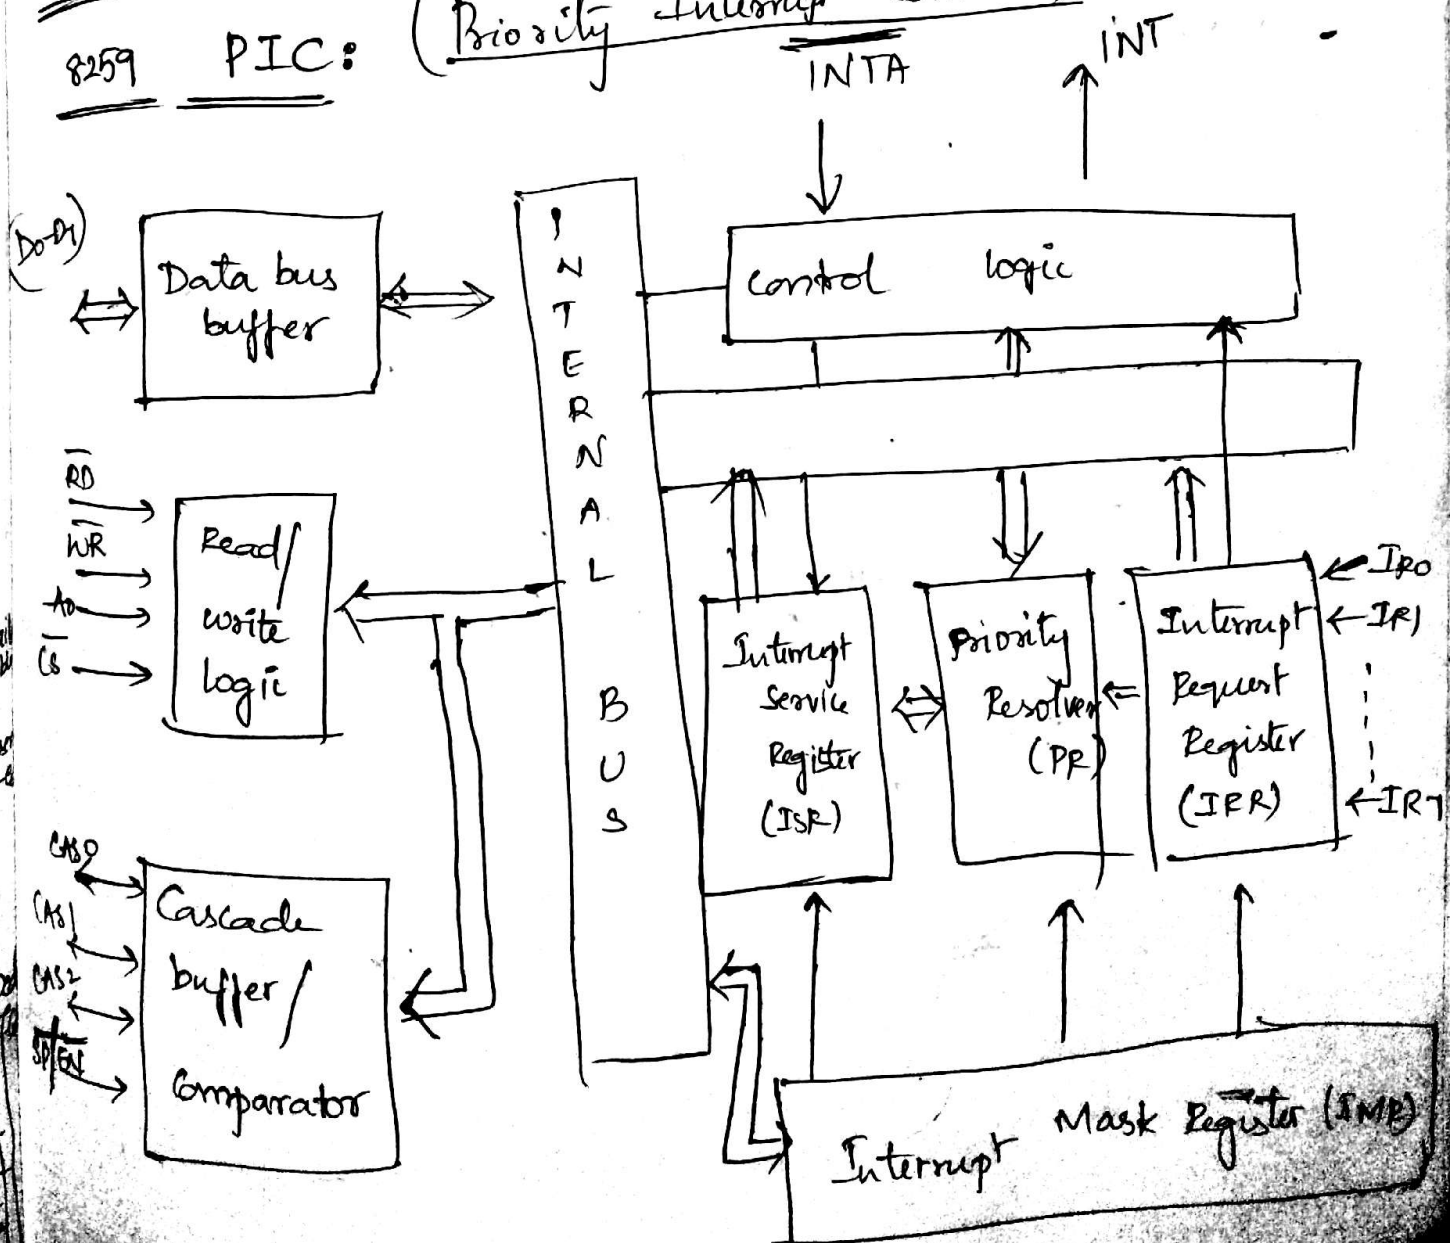 8259 PIC: (Priority Interrup
INTA
INT
(D0-D7)
Data bus
buffer
INTERNAL
BUS
control logic
RD
WR
A0
CS
Read/
write
logic
Interrupt
Service
Register
(ISR)
Priority
Resolver
(PR)
Interrupt
Request
Register
(IRR)
IR0
IR1
IR7
CAS0
CAS1
CAS2
SP/EN
Cascade
buffer/
Comparator
Interrupt Mask Register (IMR)